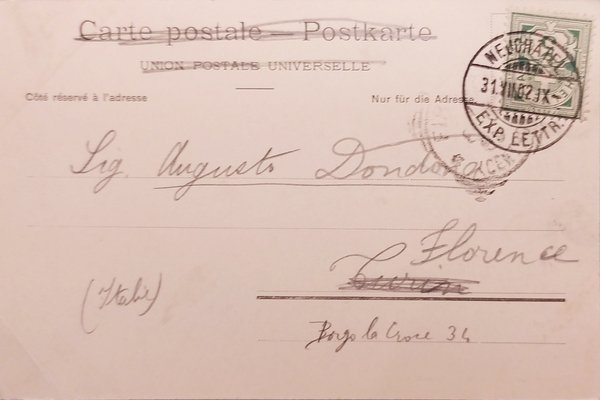 Carte postale — Postkarte
UNION POSTALE UNIVERSELLE
Côté réservé à l'adresse
Nur für die Adresse
NEUCHATEL
31.VII.02.IX-
EXP. LETTR.
Sig. Augusto Dondona
Florence
Turin
(Italie)
Borgo la Croce 34